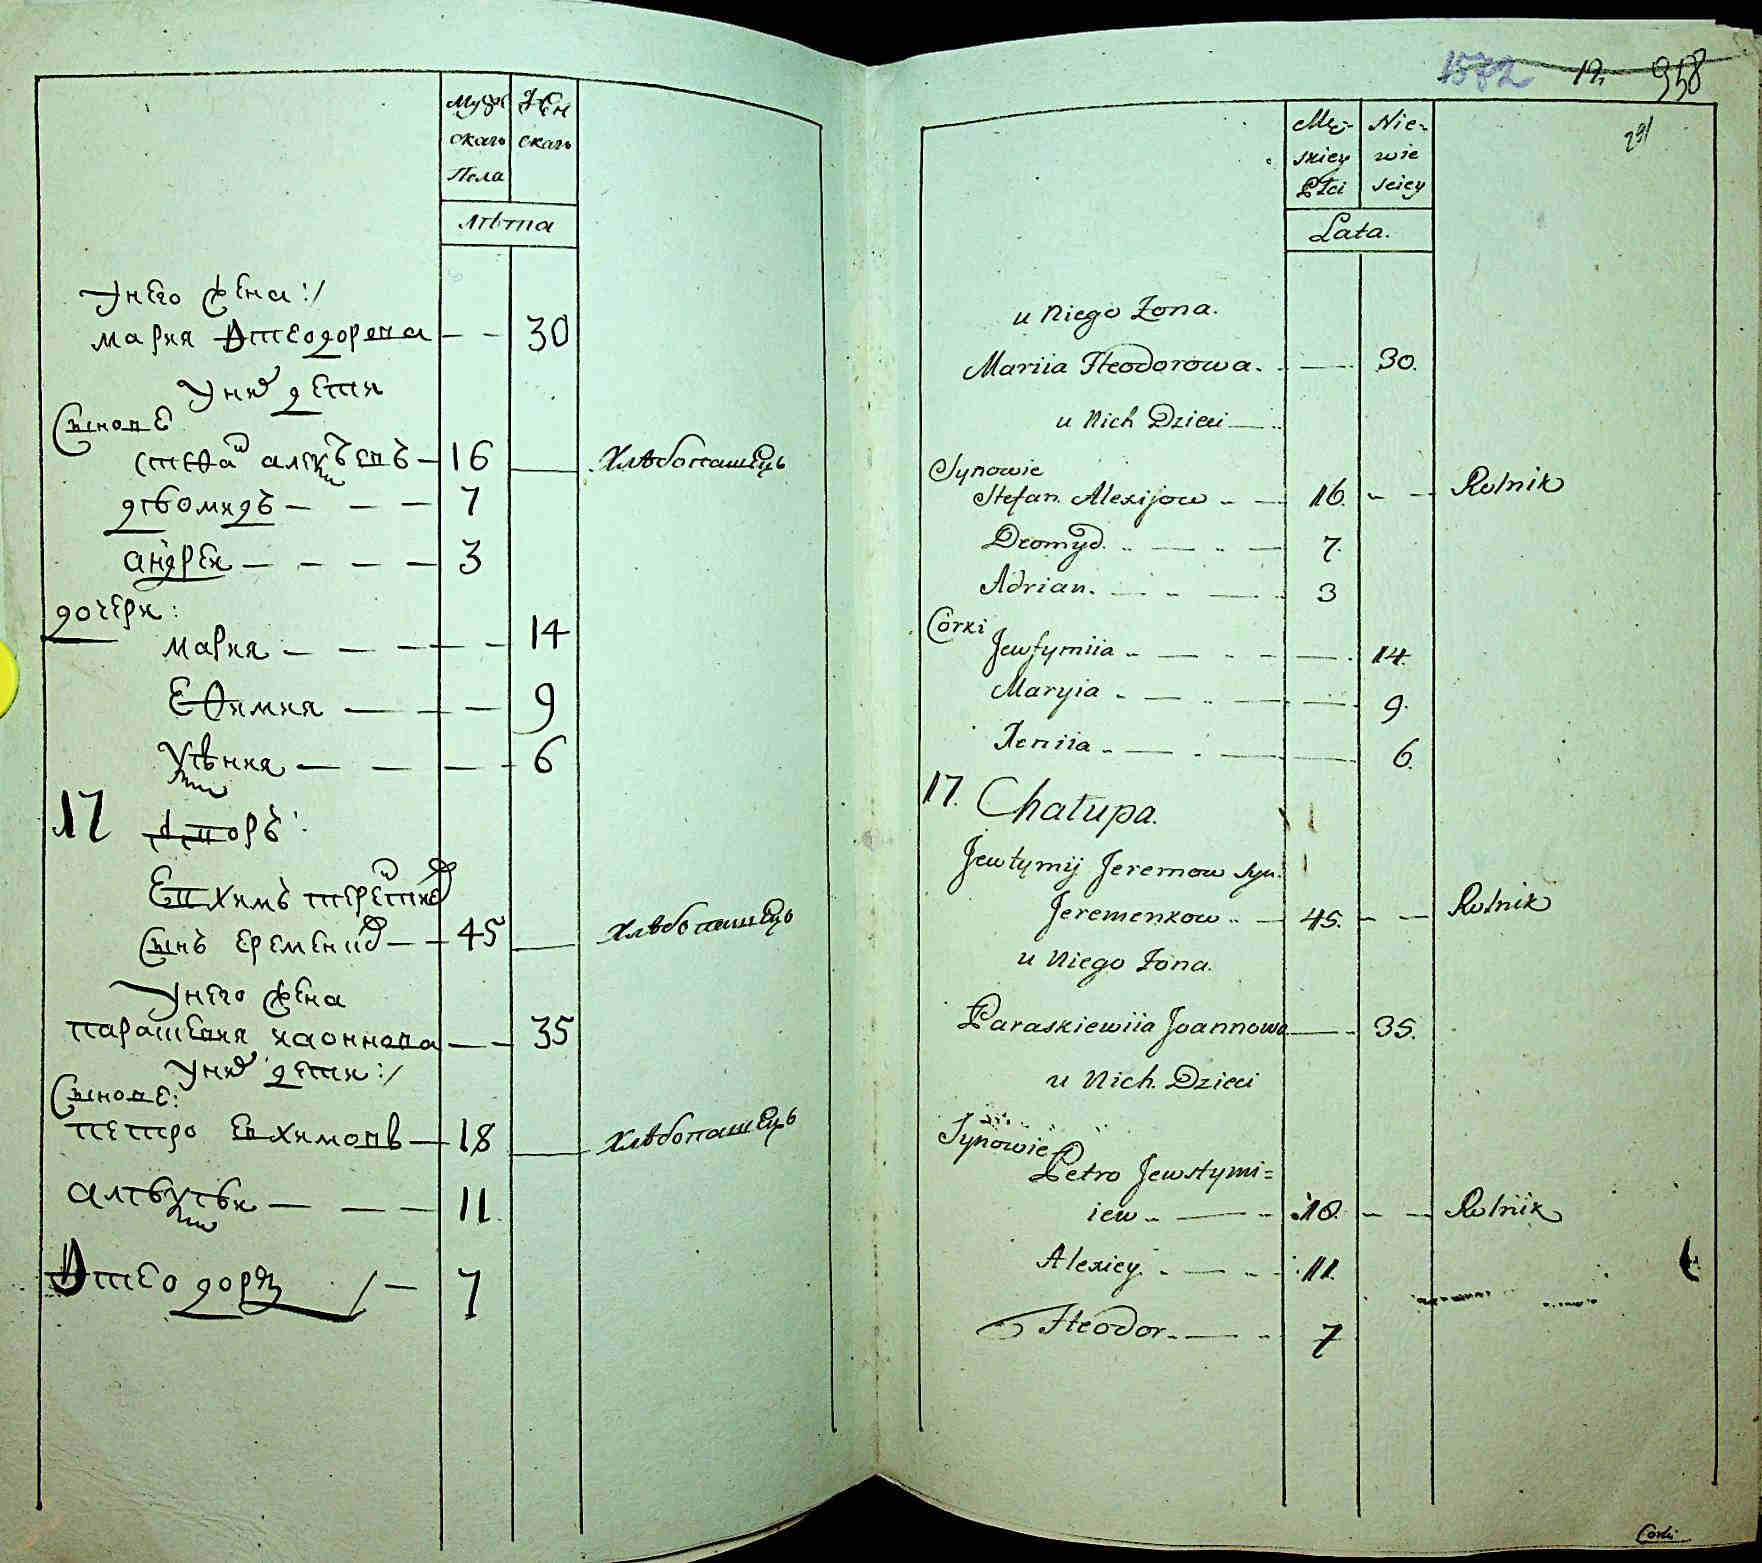 Муж
скаго
Пола
Жен
скаго
лѣта
У него жена:/
Мариа Ѳтеодорова — — 30
У них дети
Сынове
Стефан Алек — 16 — Хлѣбопашецъ
Диомидъ — — — 7
Андреи — — — — 3
дочери:
Мариа — — — — 14
Ефимиа — — — 9
— — — — 6
17 дворъ:
Евхимъ
сынъ — — 45 — Хлѣбопашецъ
У него жена
Парашевиа Иоаннова — — 35
У них дети:/
Сынове:
Петро Евхимовъ — 18 — Хлѣбопашецъ
— — — 11
Ѳтеодоръ /— 7
1572 12. 958
291
Męz-
skiey
Płci
Nie-
wie
sciey
Lata.
u Niego Żona.
Mariia Fteodorowa. — 30.
u Nich Dzieci —
Synowie
Stefan Alexijow — 16. — Rolnik
Deomyd. — — 7.
Adrian. — — 3
Córki
Jewfymiia — — — — 14.
Maryia — — — 9.
Xeniia — — — 6.
17. Chałupa.
Jewtymij Jeremow Syn.
Jeremenkow — 45. — Rolnik
u Niego Żona.
Paraskiewiia Joannowa — 35.
u Nich Dzieci
Synowie
Petro Jewstymi=
iew — — 18. — Rolnik
Alexiey — — 11.
Fteodor — — 7
Corki